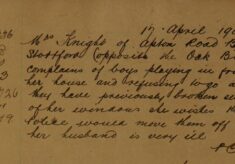 36
17 April 19
Mrs Knight of Apton Road B
Stortford (opposite the Oak B
complains of boys playing in fro
her house and refusing to go a
they have previously broken s
of her windows she wishes
Police would move them off
her husband is very ill